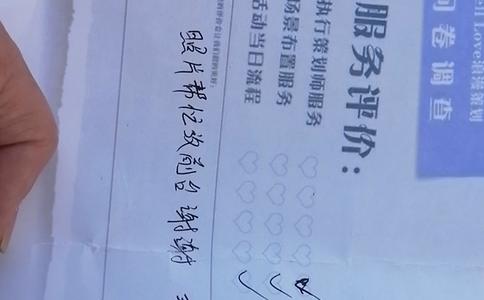 Love浪漫策划
问卷调查
服务评价：
执行策划师服务
场景布置服务
活动当日流程
照片帮忙放前台谢谢